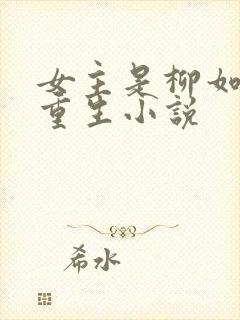 女主是柳如
重生小说
希水